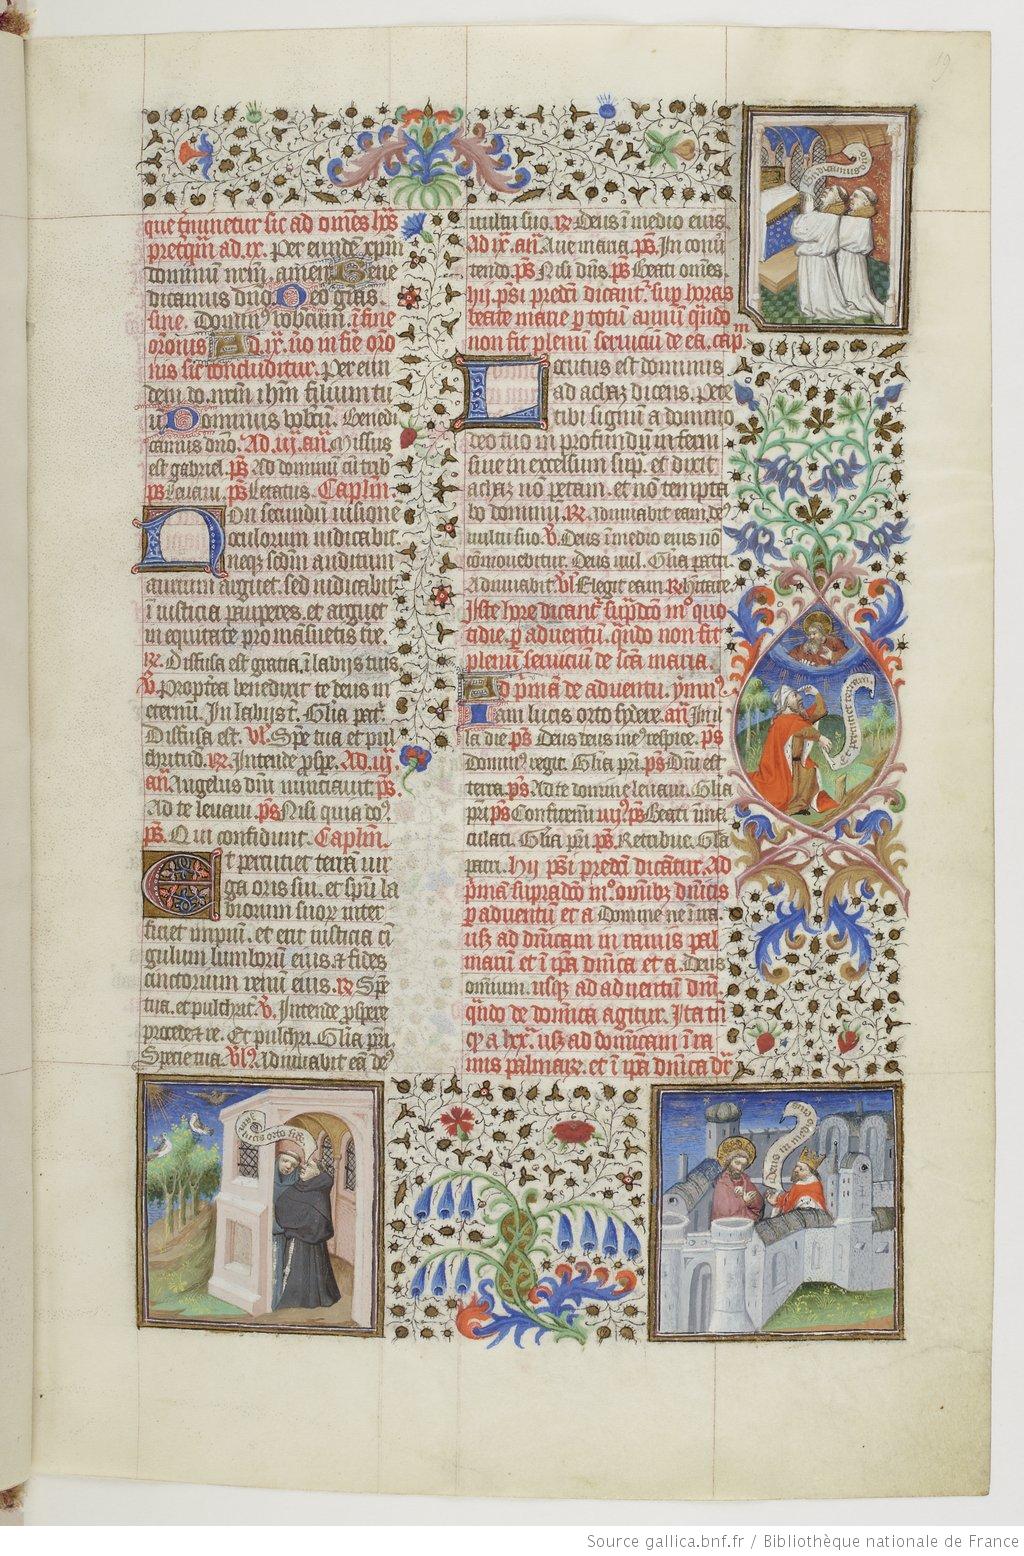 que terminetur sic ad omnes horas
preterquam ad ix. Per eundem xpm
dominum nrm. amen. Bene
dicamus dno. Deo gras.
sine. Dominus vobcum. in fine
oronis Ad. ix. vo in fine oro
nis sic concluditur. Per eun
dem do. nrm ihm filium tu
u Dominus vobcu. Benedi
camus dno. Ad. iij. an. Missus
est gabriel. ps. Ad dominu cu trib
ps Levavi. ps Letatus. Caplm.
Non secundu visione
oculorum iudicabit
neqz scdm auditum
aurium arguet. sed iudicabit
i iusticia pauperes. et arguet
in equitate pro mansuetis tre.
R. Diffusa est gratia. i labijs tuis
V. Propterea benedixit te deus in
eternu. In labijs t. Glia pat.
Diffusa est. V. Spe tua et pul
chritud. R. Intende prospe. Ad. vj.
an Angelus dni nunciavit ps.
Ad te levavi. ps Nisi quia dos
ps. Qui confidunt. Caplm.
Et percutiet terra vir
ga oris sui. et spu la
biorum suor inter
ficiet impiu. et erit iusticia ci
gulum lumboru eius. et fides
cinctorium renu eius. R Spe
tua. et pulchrit. V. Intende prospere
procede et re. Et pulchri. Glia pri
Specie tua. V. Adiuvabit ea deus
vultu suo. R. Deus i medio eius
Ad ix. an Ave maria. ps. In conv
tendo. ps Nisi dns. ps Beati omes.
hij psi predci dicant. sup horas
beate marie p totu annu qndo
non fit plenu serviciu de ea. cap.m
Locutus est dominus
ad achaz dicens. Pete
tibi signu a domino
deo tuo in profundu inferni
sive in excelsum supra. et dixit
achaz no petam. et no tempta
bo dominu. R. Adiuvabit eam deus
vultu suo. V. Deus i medio eius no
comovebitur. Deus vul. Glia patri.
Adiuvabit. V Elegit eam
Iste hore dicant supdco mo quo
tidie. p adventu. qndo non fit
plenu serviciu de sca maria.
Ad pma de adventu. ymnus.
Iam lucis orto sydere. an In il
la die. ps Deus deus meus respice. ps
Dominus regit. Glia pri. ps Dni est
terra. ps Ad te domine levavi. Glia
pri ps Confitemi. ps Beati ima
culati. Glia pri ps Retribue. Glia
patri. hij psi predci dicatur. Ad
pma supradco mo. omibz dnicis
p adventu et a Domine ne i ira
usqz ad dnicam in ramis pal
maru et i ipa dnica et a. Deus
omium. usqz ad adventu dni.
qndo de domica agitur. Ita tn
qz a lxx. usqz ad domicam i ra
mis palmarz. et i ipa dnica dr
benedicamus dno
Et percutiet terram
iam lucis orto sidere
Deus in medio eius
19
Source gallica.bnf.fr / Bibliothèque nationale de France